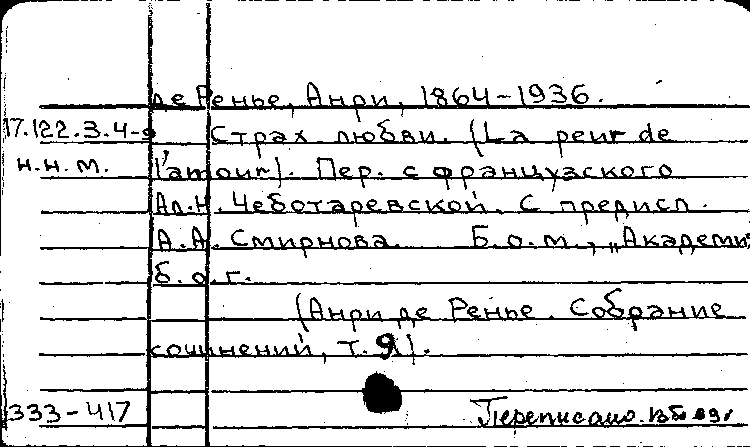 де Ренье, Анри, 1864-1936.
17.122.3.4-
Страх любви. (La peur de
н.н.м.
l'amour). Пер. с французского
Ал.Н. Чеботаревской. С предисл.
А.А. Смирнова. Б.о.м., „Академи
б.о.г.
(Анри де Ренье. Собрание
сочинений, т. 9).
333-417
Переписано.